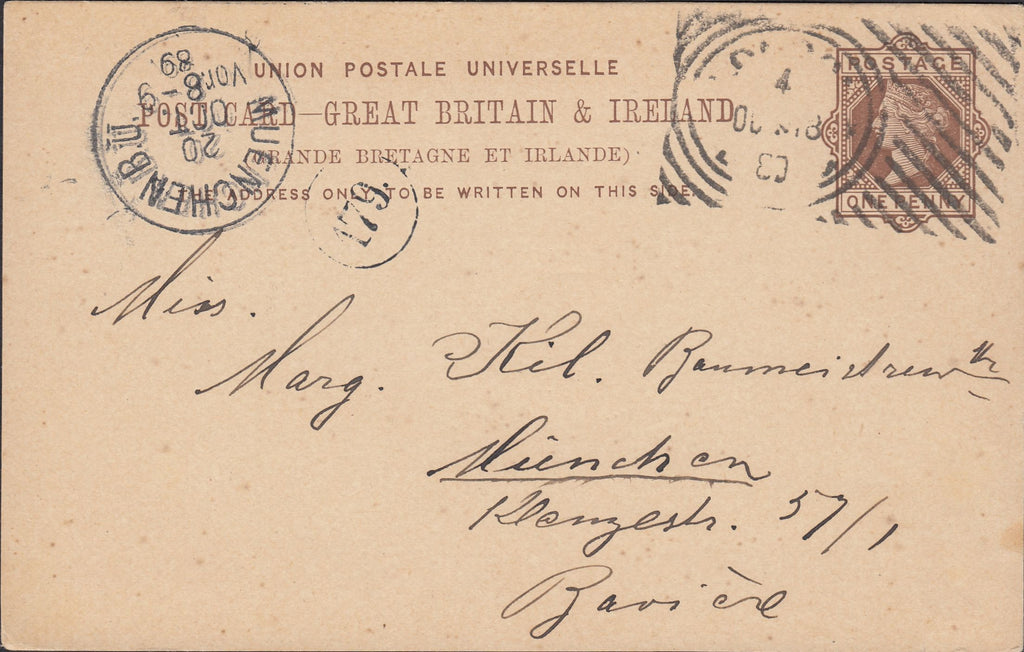 UNION POSTALE UNIVERSELLE
POST CARD—GREAT BRITAIN & IRELAND
(GRANDE BRETAGNE ET IRLANDE)
THE ADDRESS ONLY TO BE WRITTEN ON THIS SIDE.
POSTAGE
ONE PENNY
MUENCHEN B.III.
20
OCT
8-9
Vor.
89
4
OC 18
89
179.
Miss.
Marg. Kil. Baumeistrewtr
München
Klenzestr. 57/1
Bavière